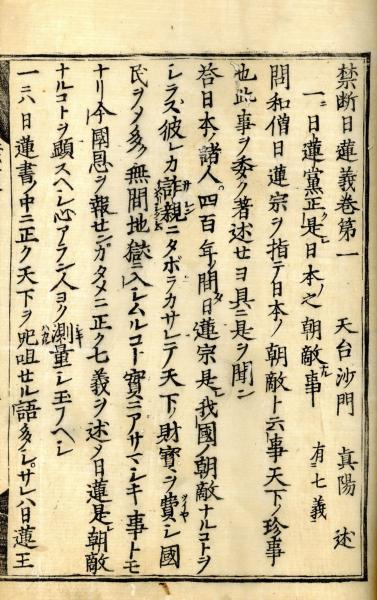 禁断日蓮義巻第一　天台沙門　真陽　述
一ニ日蓮黨正ク是レ日本ノ之朝敵ナル事　有ニ七義
問和僧日蓮宗ヲ指テ日本ノ朝敵ト云事天下ノ珍事
也此事ヲ委ク著述セヨ具ニ是ヲ聞ン
答日本ノ諸人四百年ノ間タ日蓮宗是レ我國ノ朝敵ナルコトヲ
シラズ彼レカ詐親ニタボラカサレテ天下ノ財寶ヲ費シ國
民ヲメ多ク無間地獄ニ入レムルコト寳ニアサマシキ事トモ
ナリ今國恩ヲ報センガタメニ正ク七義ヲ述メ日蓮是レ朝敵
ナルコトヲ顕スヘシ心アラン人ヨク測量シ玉フヘシ
一ニハ日蓮書ノ中ニ正ク天下ヲ咒咀セル語多シサレハ日蓮王